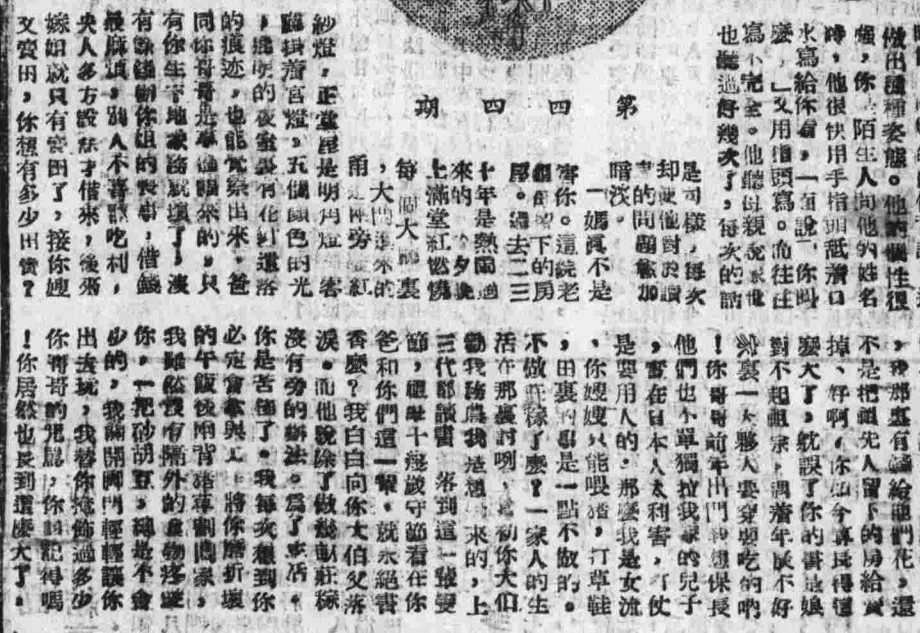 做出種種姿態。他的個性很
强,你陌生人問他的姓名
時,他很快用手指頭蘸着口
水寫給你看,一面說「你叫
麽,」又用指頭寫。而往往
寫不完全。他聽母親說家世
也聽過好幾次了,每次的話
第四四期
是同樣,每次
却使他對於讀
書的問題愈加
暗淡。
「媽眞不是
害你。這院老
下的房
屋。過去二三
十年是熱鬧過
來的。夕晚
上滿堂紅燃燒
每一個大廳裏
,大門進來的
甬道兩旁紅
紗燈,正堂屋是明角燈,客
廳掛着宮燈,五個顔色的光
,透明的夜室裏有花灯還落
的痕迹,也能覺察出來。爸
同你哥哥是過來的,只
有你生下地家務就壞了,沒
有錢辦你姐的喪事,借錢
最麻煩,別人不喜歡吃利,
央人多方設法才借來,後來
嫁姐就只有賣田了,接你嫂
又賣田,你想有多少田賣?
,我那裏有錢給他們花,還
不是把祖先人留下的房給賣
掉、好啊,你如今算長得這
麽大了,就誤了你的書是娘
對不起祖宗,調着年成不好
,家裏一大夥人要穿要吃的吶
!你哥哥前年出門保長
他們也不單獨拉我家的兒子
,實在日本人太利害,打仗
是要用人的。那麽我是女流
、你嫂嫂只能喂猪,打草鞋
,田裏的事是一點不做的。
不做莊稼了麽?一家人的生
活在那裏討咧,當初你大們
勸我務農我是想來的,上
三代都讀書落到這一輩變
節,十幾歲守節看在你
爸和你們這一輩,就永絕書
香麽?我白白向你大伯父落
淚。而他說除了做幾畝莊稼
沒有旁的辦法。爲了生活。
你是苦極了。我每次想到你
必定會將你磨折壞
的午飯後背着草割回家,
我雖然沒有隔外的食物疼愛
你,一把砂胡豆,總是不會
少的,我開門輕輕讓你
出去玩,我替你掩飾過多少
你哥哥的咒罵,你該記得嗎
!你居然也長到這樣大了。